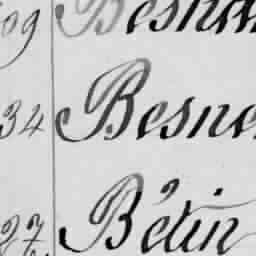 09 Besna
34 Besne
27 Bétin